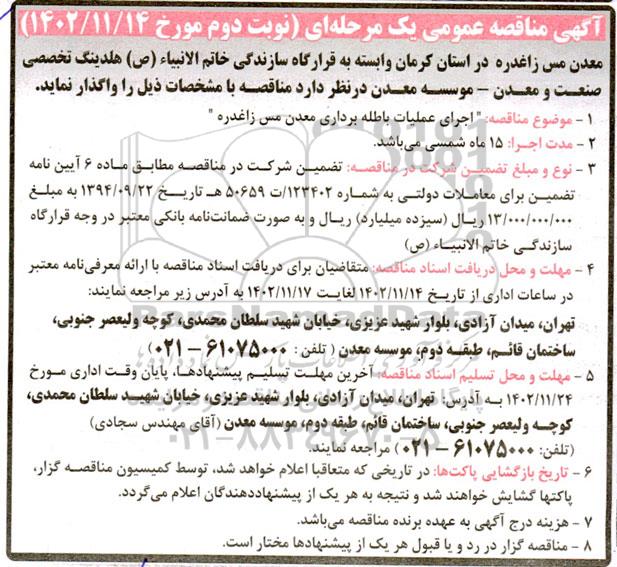 آگهی مناقصه عمومی یک مرحله‌ای (نوبت دوم مورخ ۱۴۰۲/۱۱/۱۴)
معدن مس زاغدره در استان کرمان وابسته به قرارگاه سازندگی خاتم الانبیاء (ص) هلدینگ تخصصی
صنعت و معدن – موسسه معدن درنظر دارد مناقصه با مشخصات ذیل را واگذار نماید.
۱ – موضوع مناقصه: " اجرای عملیات باطله برداری معدن مس زاغدره "
۲ – مدت اجرا: ۱۵ ماه شمسی می‌باشد.
۳ – نوع و مبلغ تضمین شرکت در مناقصه: تضمین شرکت در مناقصه مطابق ماده ۶ آیین نامه
تضمین برای معاملات دولتی به شماره ۱۲۳۴۰۲/ت ۵۰۶۵۹ هـ تاریخ ۱۳۹۴/۰۹/۲۲ به مبلغ
۱۳/۰۰۰/۰۰۰/۰۰۰ ریال (سیزده میلیارد) ریال و به صورت ضمانت‌نامه بانکی معتبر در وجه قرارگاه
سازندگی خاتم الانبیاء (ص)
۴ – مهلت و محل دریافت اسناد مناقصه: متقاضیان برای دریافت اسناد مناقصه با ارائه معرفی‌نامه معتبر
در ساعات اداری از تاریخ ۱۴۰۲/۱۱/۱۴ لغایت ۱۴۰۲/۱۱/۱۷ به آدرس زیر مراجعه نمایند:
تهران، میدان آزادی، بلوار شهید عزیزی، خیابان شهید سلطان محمدی، کوچه ولیعصر جنوبی،
ساختمان قائم، طبقه دوم، موسسه معدن (تلفن: ۶۱۰۷۵۰۰۰ – ۰۲۱)
۵ – مهلت و محل تسلیم اسناد مناقصه: آخرین مهلت تسلیم پیشنهادها، پایان وقت اداری مورخ
۱۴۰۲/۱۱/۲۴ به آدرس: تهران، میدان آزادی، بلوار شهید عزیزی، خیابان شهید سلطان محمدی،
کوچه ولیعصر جنوبی، ساختمان قائم، طبقه دوم، موسسه معدن (آقای مهندس سجادی)
(تلفن: ۶۱۰۷۵۰۰۰ – ۰۲۱) مراجعه نمایند.
۶ – تاریخ بازگشایی پاکت‌ها: در تاریخی که متعاقبا اعلام خواهد شد، توسط کمیسیون مناقصه گزار،
پاکتها گشایش خواهند شد و نتیجه به هر یک از پیشنهاددهندگان اعلام می‌گردد.
۷ – هزینه درج آگهی به عهده برنده مناقصه می‌باشد.
۸ – مناقصه گزار در رد و یا قبول هر یک از پیشنهادها مختار است.